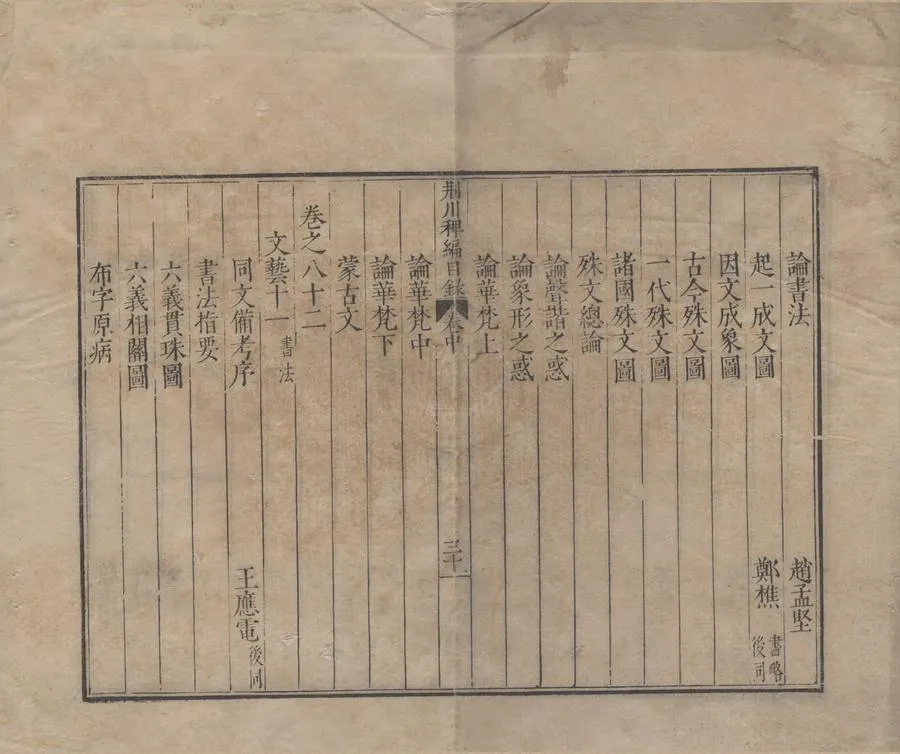 論書法 趙孟堅
起一成文圖 鄭樵 書略後同
因文成象圖
古今殊文圖
一代殊文圖
諸國殊文圖
殊文總論
論聲諧之惑
論象形之惑
論華梵上
荆川稗編目錄 卷中
論華梵中
論華梵下
蒙古文
卷之八十二
文藝十一 書法
同文備考序 王應電 後同
書法指要
六義貫珠圖
六義相關圖
布字原病